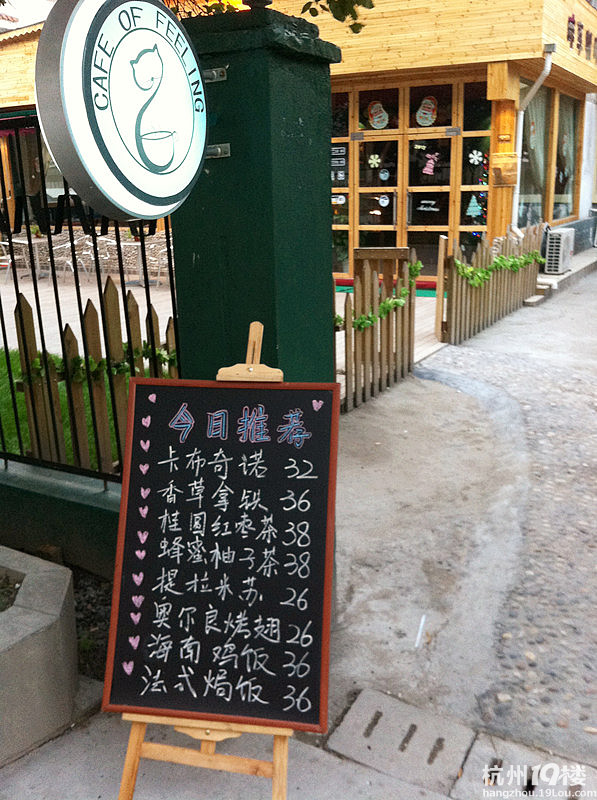 CAFE OF FEELING
今日推荐
卡布奇诺 32
香草拿铁 36
桂圆红枣茶 38
蜂蜜柚子茶 38
提拉米苏 26
奥尔良烤翅 26
海南鸡饭 36
法式焗饭 36
杭州19楼
hangzhou.19Lou.com